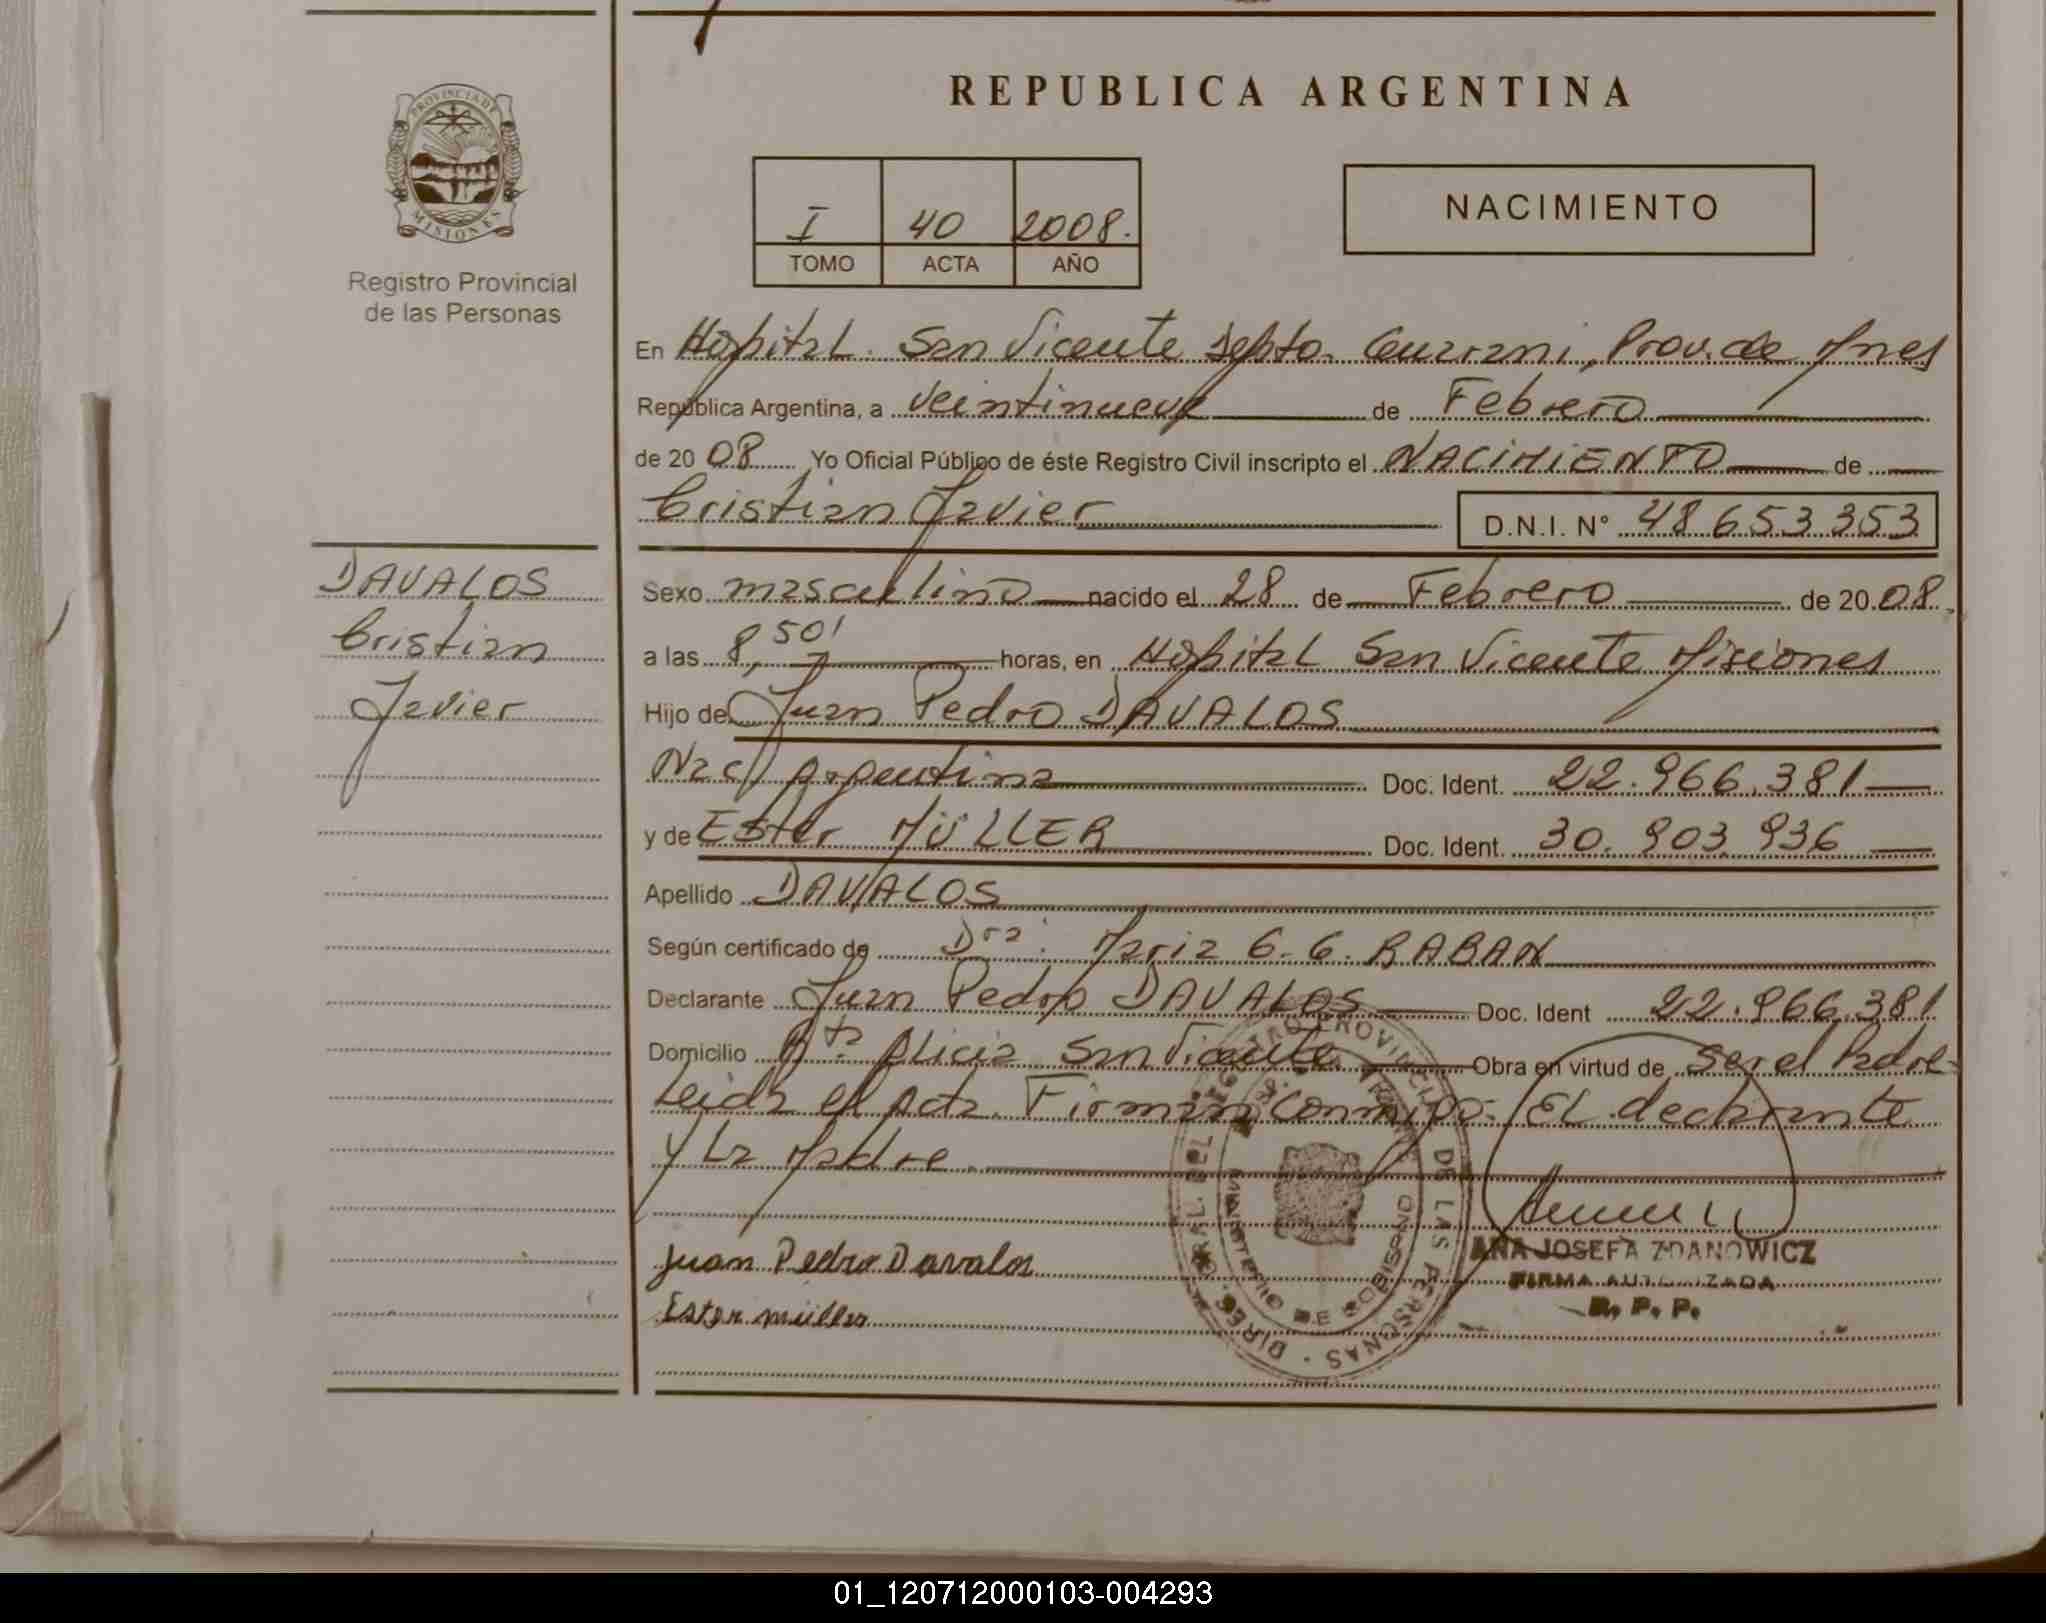 REPUBLICA ARGENTINA
PROVINCIA DE
MISIONES
Registro Provincial
de las Personas
I 40 2008.
TOMO ACTA AÑO
NACIMIENTO
En Hospital San Vicente Depto. Guarani, Prov. de Mnes
República Argentina, a veintinueve de Febrero
de 20 08 Yo Oficial Público de éste Registro Civil inscripto el NACIMIENTO de
Cristian Javier D.N.I. N° 48653353
DAVALOS
Cristian
Javier
Sexo masculino nacido el 28 de Febrero de 20 08.
a las 8,50' horas, en Hospital San Vicente Misiones
Hijo de Juan Pedro DAVALOS
Nac. Argentina Doc. Ident. 22.966.381
y de Ester MÜLLER Doc. Ident. 30.903.936
Apellido DAVALOS
Según certificado de Dra. Maria G. G. RABAN
Declarante Juan Pedro DAVALOS Doc. Ident 22.966.381
Domicilio Pta. Alicia San Vicente Obra en virtud de ser el Padre
Leida el Acta. Firman conmigo. EL declarante
y La Madre.
Juan Pedro Davalos
Ester müller
DE LAS PERSONAS
ANA JOSEFA ZDANOWICZ
FIRMA AUTORIZADA
R. P. P.
01_120712000103-004293